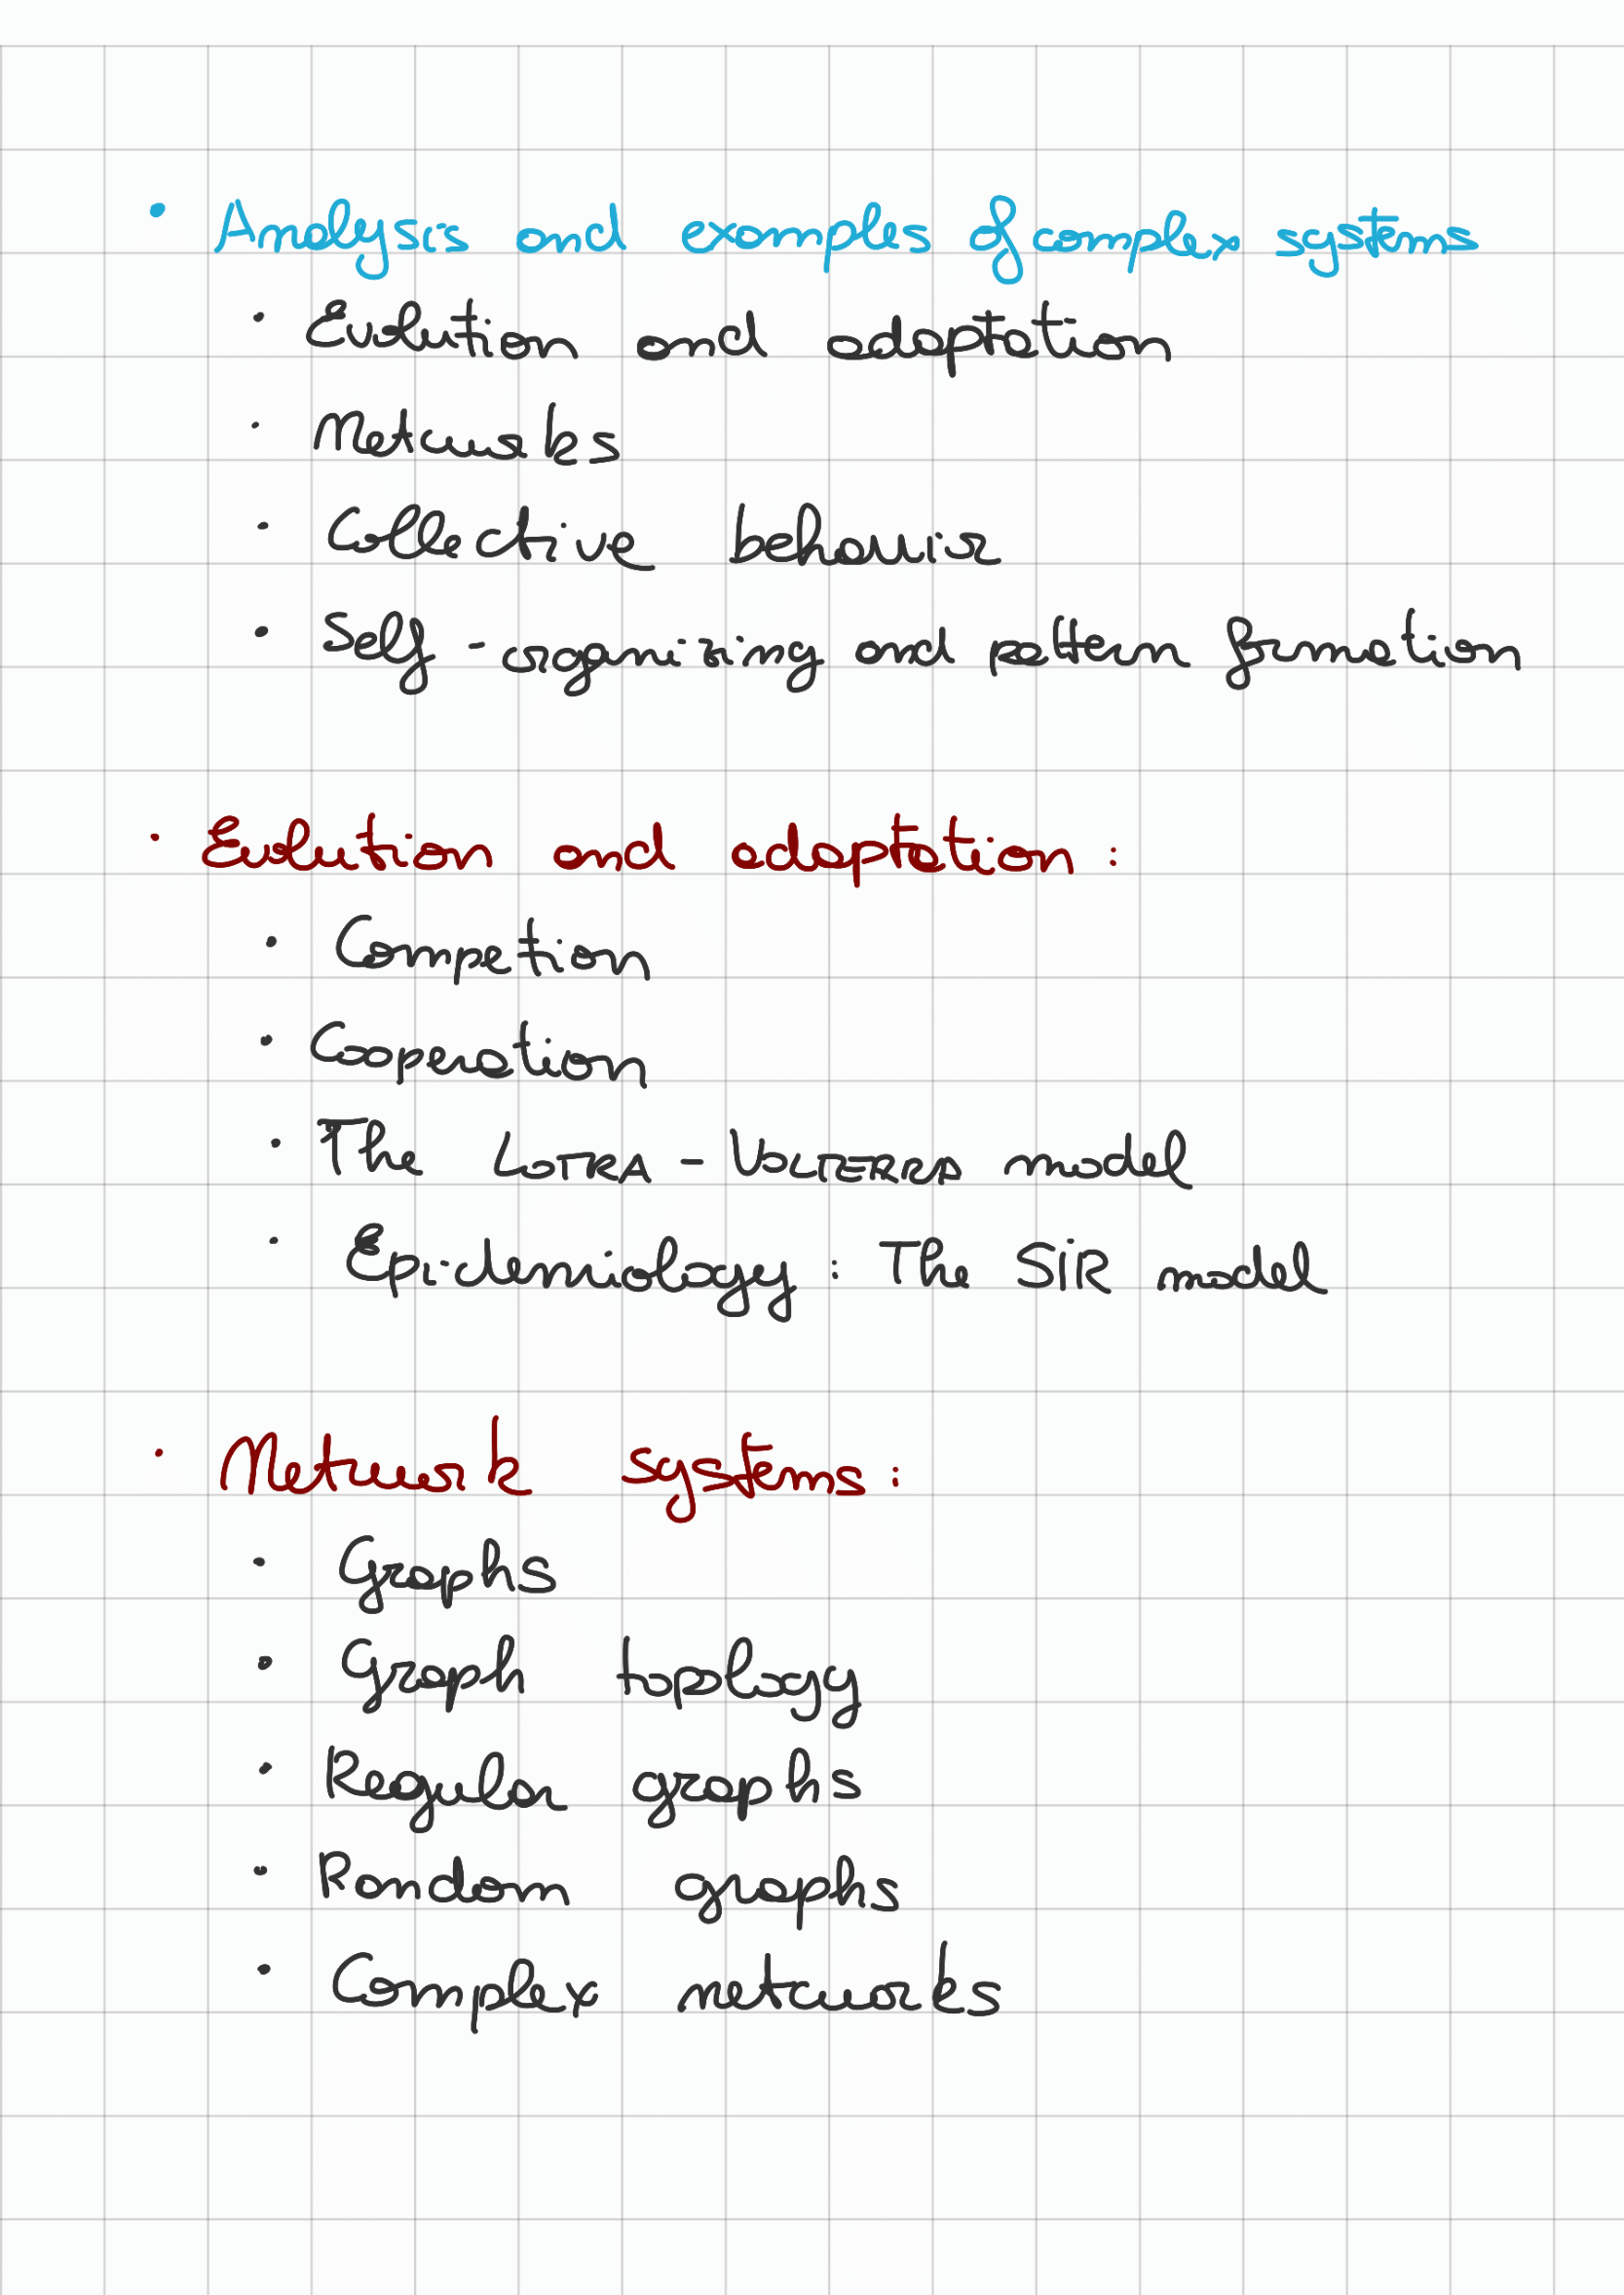 • Analysis and examples of complex systems
• Evolution and adaptation
• Networks
• Collective behavior
• Self-organizing and pattern formation
• Evolution and adaptation:
• Competion
• Cooperation
• The LOTKA-VOLTERRA model
• Epidemiology: The SIR model
• Network systems:
• Graphs
• Graph topology
• Regular graphs
• Random graphs
• Complex networks